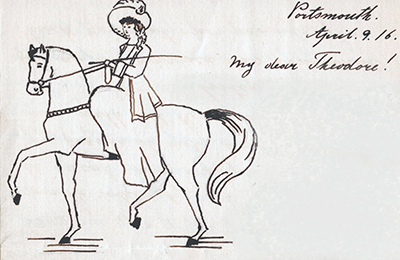 Portsmouth.
April. 9. 16.
My dear Theodore!